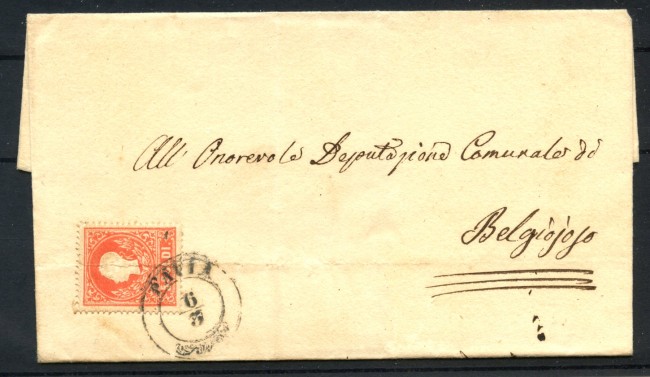 All' Onorevole Deputazione Comunale di
Belgiojoso
PAVIA
6
3
10